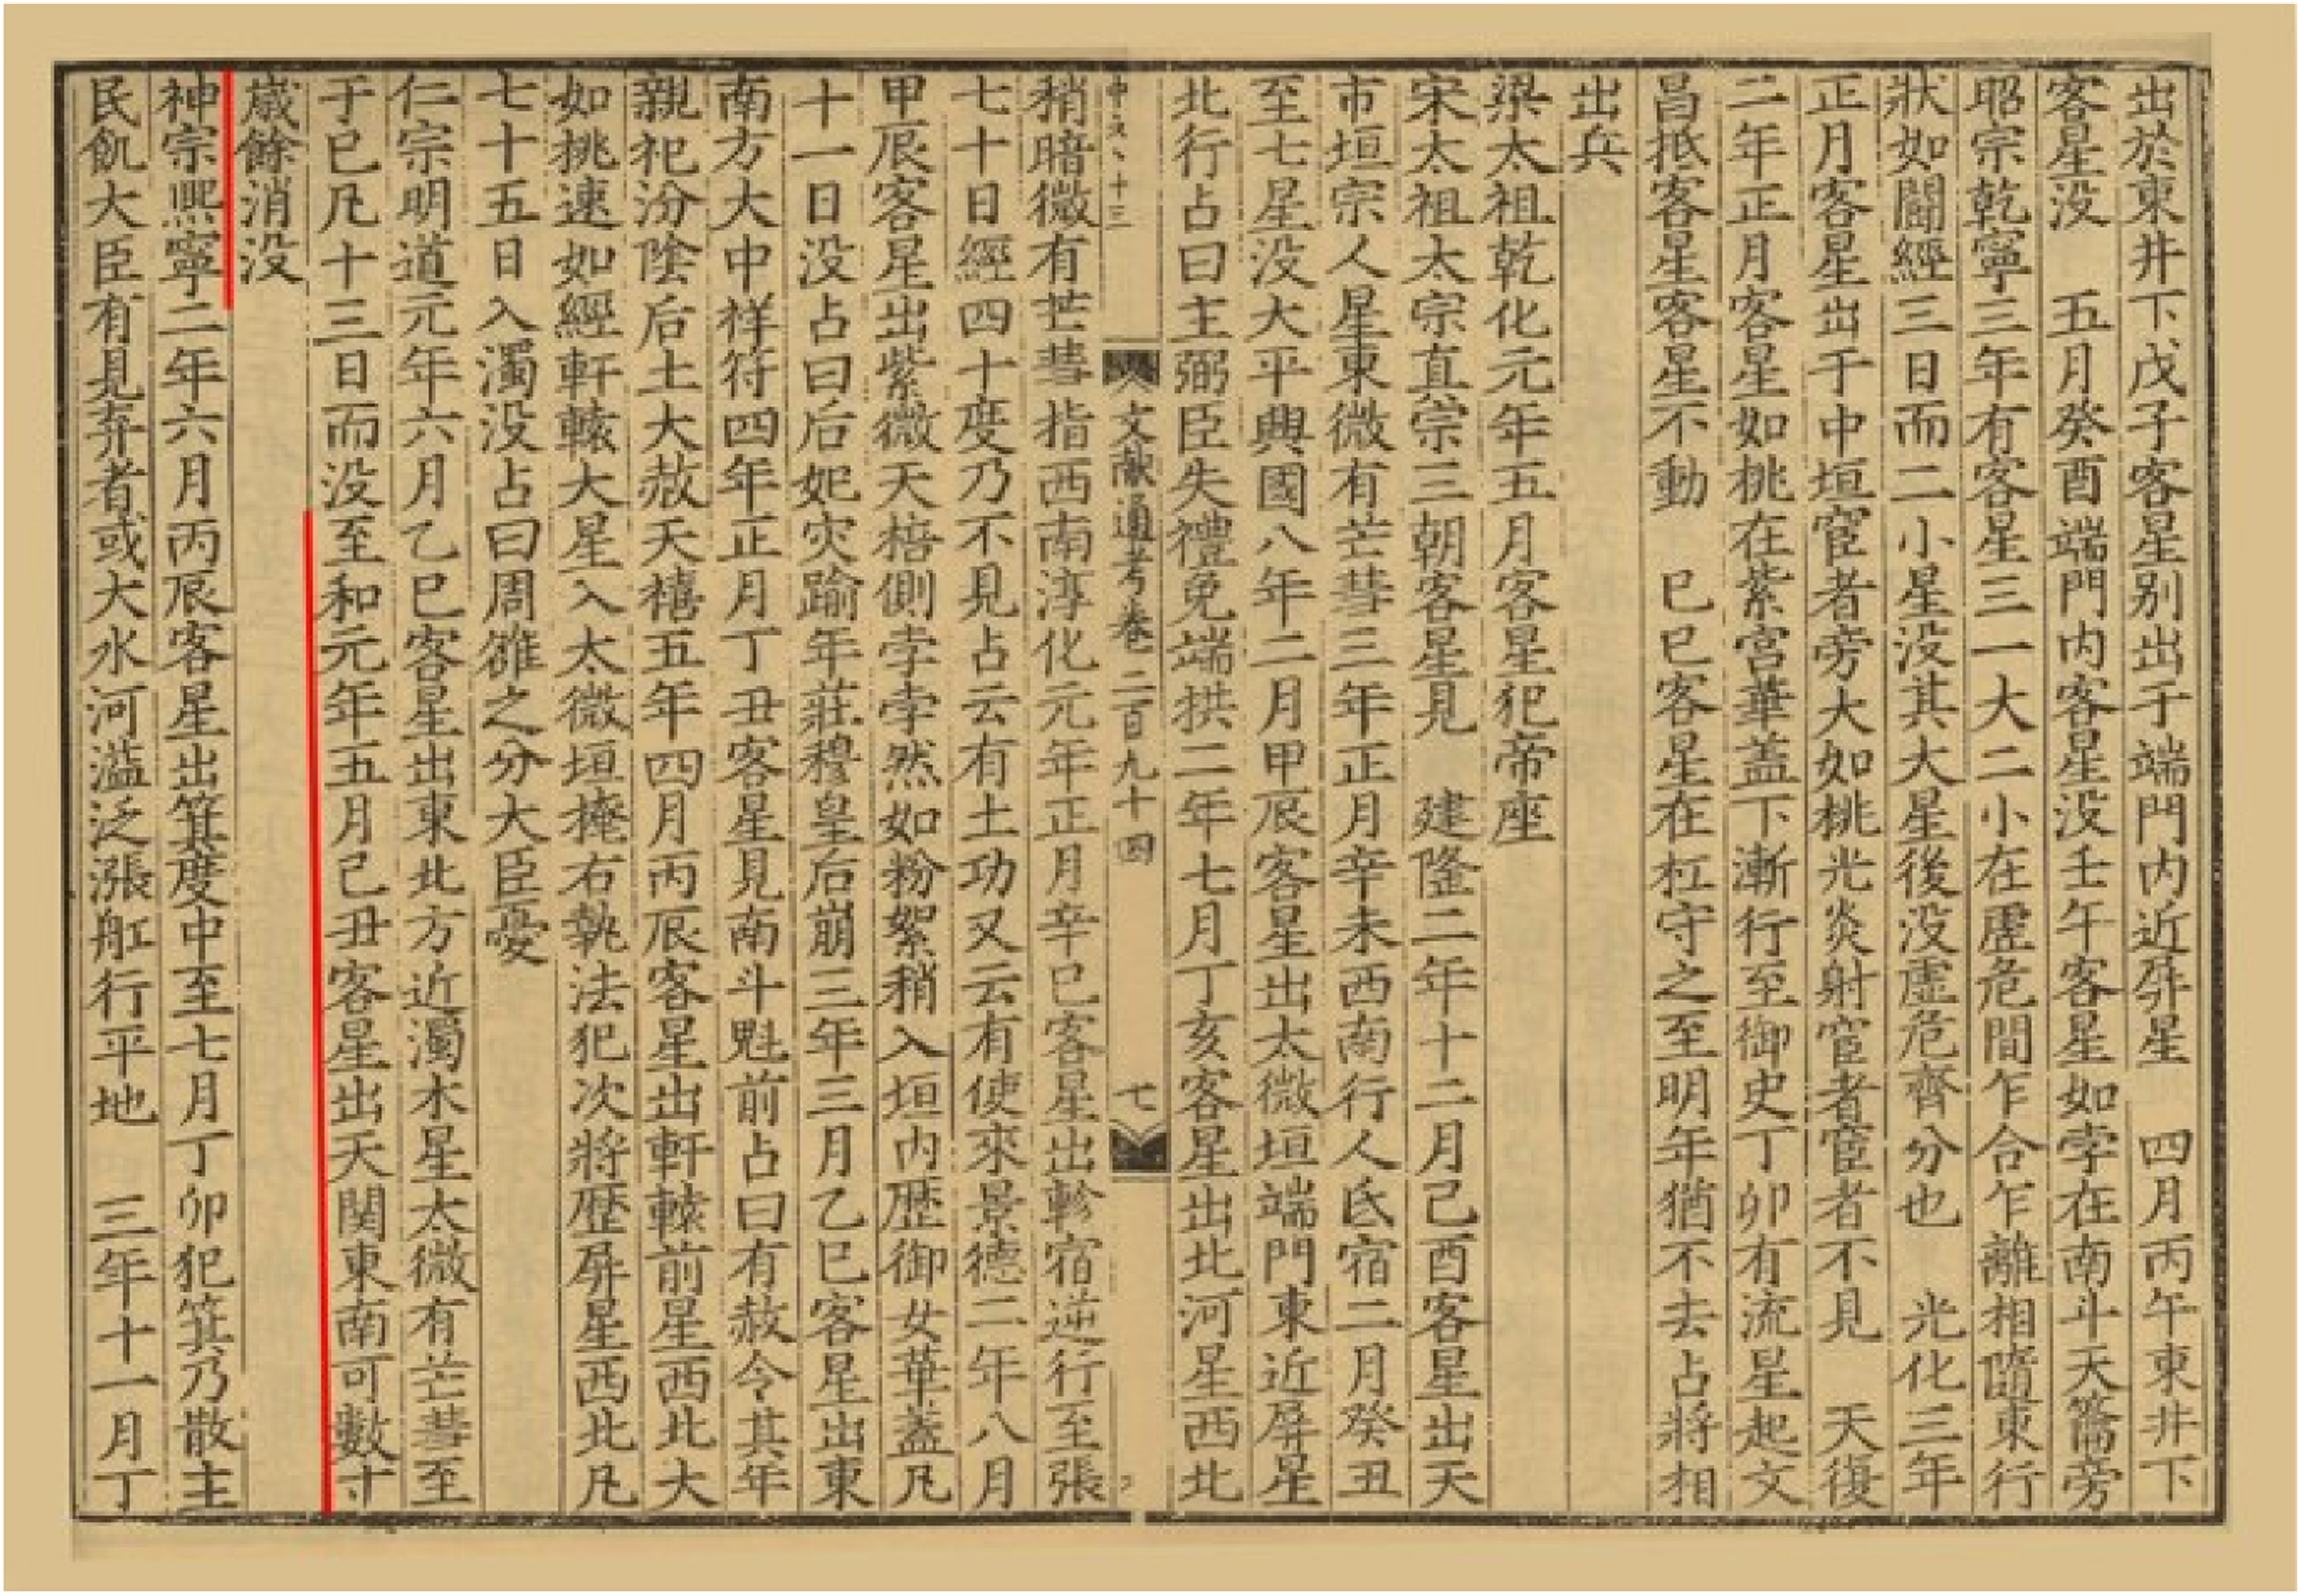 出於東井下戊子客星别出于端門内近屏星　四月丙午東井下
客星没　五月癸酉端門内客星没壬午客星如孛在南斗天籥旁
昭宗乾寧三年有客星三一大二小在虚危間乍合乍離相隨東行
狀如鬬經三日而二小星没其大星後没虚危齊分也　光化三年
正月客星出于中垣宦者旁大如桃光炎射宦者宦者不見　天復
二年正月客星如桃在紫宮華蓋下漸行至御史丁卯有流星起文
昌抵客星客星不動　巳巳客星在杠守之至明年猶不去占將相
出兵
梁太祖乾化元年五月客星犯帝座
宋太祖太宗真宗三朝客星見　建隆二年十二月己酉客星出天
市垣宗人星東微有芒彗三年正月辛未西南行人氐宿二月癸丑
至七星没大平興國八年二月甲辰客星出太微垣端門東近屏星
北行占曰主弼臣失禮免端拱二年七月丁亥客星出北河星西北
文獻通考卷二百九十四　七
稍暗微有芒彗指西南淳化元年正月辛巳客星出軫宿逆行至張
七十日經四十度乃不見占云有土功又云有使來景德二年八月
甲辰客星出紫微天棓側孛孛然如粉絮稍入垣内歴御女華蓋凡
十一日没占曰后妃灾踰年莊穆皇后崩三年三月乙巳客星出東
南方大中祥符四年正月丁丑客星見南斗魁前占曰有赦令其年
親祀汾陰后土大赦天禧五年四月丙辰客星出軒轅前星西北大
如桃速如經軒轅大星入太微垣掩右執法犯次將歴屏星西北凡
七十五日入濁没占曰周雒之分大臣憂
仁宗明道元年六月乙巳客星出東北方近濁木星太微有芒彗至
于巳凡十三日而没至和元年五月己丑客星出天関東南可數寸
嵗餘消没
神宗熈寧二年六月丙辰客星出箕度中至七月丁卯犯箕乃散主
民飢大臣有見弃者或大水河溢泛漲舡行平地　三年十一月丁